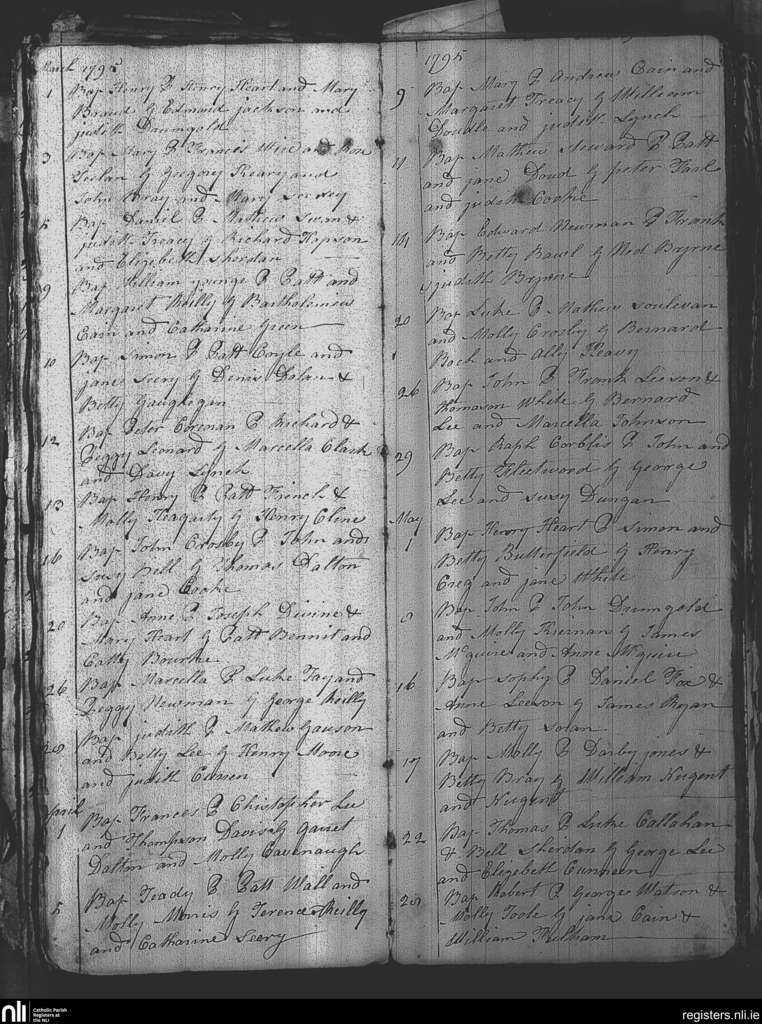 March 1795
1 Bap Henry P Henry Heart and Mary
Braud G Edmund jackson and
judith Drumgold
3 Bap Mary P Francis Wise and
G Gregory Keary and
John Bray and Mary
5 Bap Daniel P Mathew Swan &
judith Treacy G Richard Hopson
and Elizebeth Sherdan
9 Bap William younge P Patt and
Margaret Reilly G Bartholomew
Cain and Catharine Green
10 Bap Simon P Patt Coyle and
jane Seery G Denis Dolan &
Betty Gaughegan
12 Bap Peter Corenan P Richard &
Peggy Leonard G Marcella Clark
and Davy Lynch
13 Bap Henry P Patt French &
Molly Heagarty G Henry Cline
16 Bap John Crosby P John and
Susy Bell G Thomas Dalton
and jane Cooke
20 Bap Anne P Joseph Divine &
Mary Heart G Patt Bennit and
Catty Bourke
26 Bap Marcella P Luke Fay and
Peggy Newman G George Reilly
28 Bap judith P Mathew Gauson
and Betty Lee G Henry Moore
and judith
April
1 Bap Frances P Chistopher Lee
and Thompson Davis G Garret
Dalton and Molly Cavenaugh
5 Bap Teady P Patt Wall and
Molly G Terence Reilly
and Catharine Seery
1795
9 Bap Mary P Andrew Cain and
Margaret Treacy G William
Doudle and judith Lynch
11 Bap Mathew Seward P Patt
and jane Doud G peter Farl
and judith Cooke
14 Bap Edward Newman P Frank
and Betty Bawl G Ned Bryrne
judith Bryrne
20 Bap Luke P Mathew Soulevan
and Molly Crosby G Bernard
Bock and Ally Heavy
26 Bap John P Frank Leeson &
Thomason White G Bernard
Lee and Marcella Johnson
29 Bap Raph Corblis P John and
Betty Fleetwood G George
Lee and Susy Dungan
May
1 Bap Henry Heart P Simon and
Betty Butterfield G Henry
Creg and jane White
8 Bap John P John Drumgold
and Molly Kiernan G James
McGuire and Anne McGuire
16 Bap Sophy P Daniel Fox &
Anne Leeson G James Ryan
and Betty Swan
17 Bap Molly P Darby jones &
Betty Bray G William Nugent
and Nugent
22 Bap Thomas P Luke Callahan
& Bell Sherdan G George Lee
and Elizebeth Cunneen
28 Bap Robert P George Watson &
Molly Toole G jane Cain &
William Kelham
nli
Catholic Parish
Registers at
the NLI
registers.nli.ie